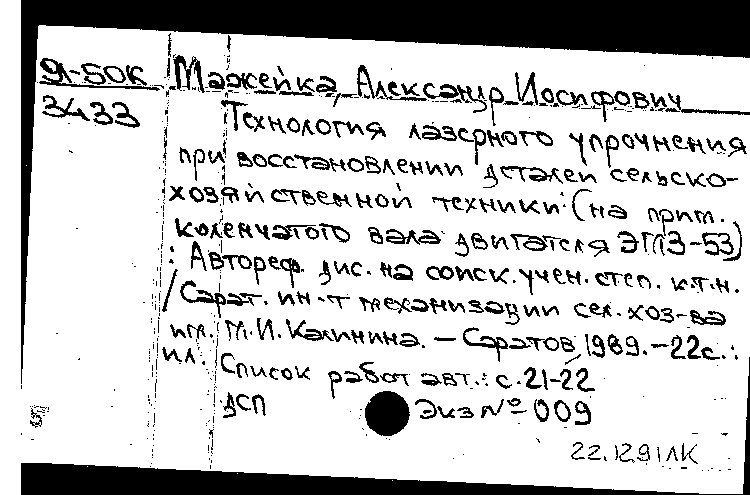 91-50К Мажейка, Александр Иосифович
3433 Технология лазерного упрочнения
при восстановлении деталей сельско-
хозяйственной техники (на прим.
коленчатого вала двигателя ЗМЗ-53)
: Автореф. дис. на соиск. учен. степ. к.т.н.
/ Сарат. ин-т механизации сел. хоз-ва
им. М.И. Калинина. - Саратов, 1989. - 22с.:
ил. Список работ авт.: с. 21-22
ДСП Экз № 009
5
22.12.91 ЛК